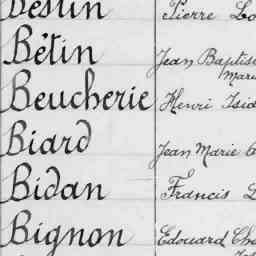 Destin Pierre
Bétin Jean Baptis
Mari
Beucherie Henri Isid
Biard Jean Marie
Bidan Francis
Bignon Edouard Che